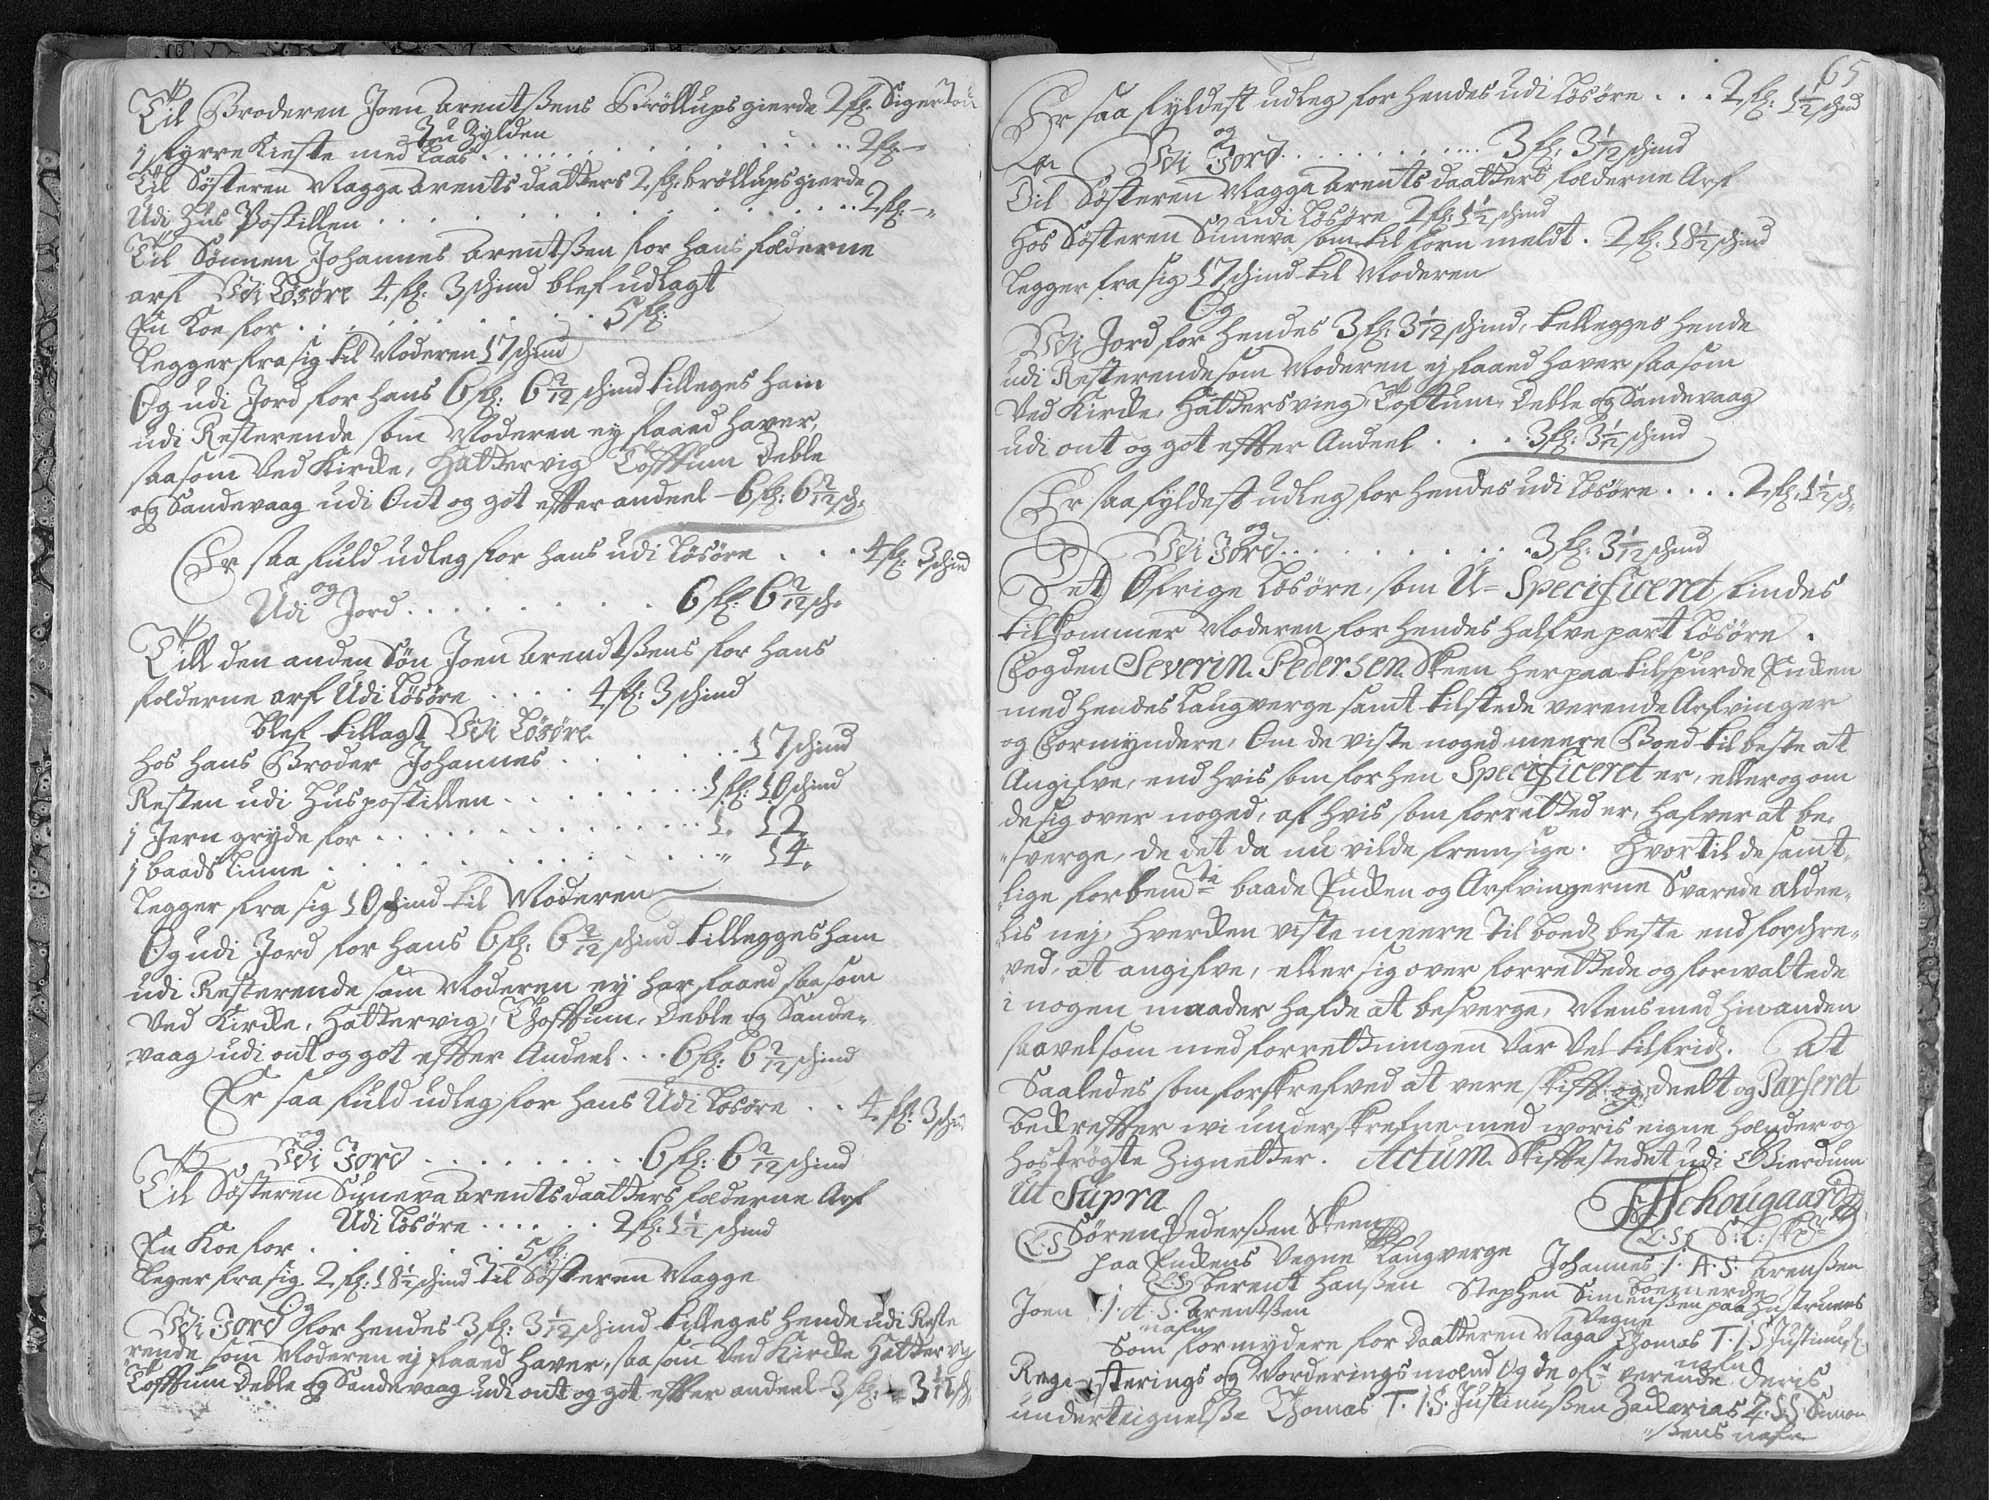 Til Broderen Joen Arentsens Bröllups gierde 2 fl: Siger Tou
Zu Zylden
j fyrre Kieste med Laas . . . . . . . . . . . 2 fl: -
Til Søsteren Magga Arents daatters 2 fl: bröllups gierde
Udi Hus Postillen . . . . . . . . . . . 2 fl: -
Til Sönnen Johannes Arentsen for hans fæderne
arf Udi Løsøre 4 fl: 3 schind blef udlagt
En Koe for . . . . . . . . . . 5 fl:
legger fra sig til Moderen 17 schind
Og udi Jord for hans 6 fl: 6 2/12 schind tilleges ham
udi Resterende som Moderen ey faaed haver,
saasom Ved Kircke, Hattervig Tofftum Deble
og Sandevaag udi Ont og got effter andeel - 6 fl: 6 2/12 sch.
Er saa fuld udleg for hans udi Løsøre . . . 4 fl: 3 schind
og
Udi Jord . . . . . . . . 6 fl: 6 2/12 sch.
Till den anden Søn Joen Arendtsens for hans
fæderne arf Udi Løsøre . . . . 4 fl: 3 schind
blef tillagt Udi Løsøre
Hos hans Broder Johannes . . . . . . 17 schind
Resten udi Huspostillen . . . . . . . 1 fl: 10 schind
j Jern gryde for . . . . . . . . . . . 1. 12.
j baads Linne . . . . . . . . . . . " 14.
legger fra sig 10 schind til Moderen
Og udi Jord for hans 6 fl: 6 2/12 schind tillegges ham
udi Resterende som Moderen ey har faaed saasom
Ved Kircke, Hattervig, Thofftum, Deble og Sande-
vaag udi ont og got effter Andeel . . . 6 fl: 6 2/12 schind
Er saa fuld udleg for hans Udi Løsøre . . 4 fl: 3 schind
og
Udi Jord . . . . . . . . . 6 fl: 6 2/12 schind
Til Søsteren Suneva Arents daatters fæderne Arf
Udi Løsøre . . . . . . 2 fl: 1 1/2 schind
En Koe for . . . . . . . . 5 fl:
Leger fra sig 2 fl: 18 1/2 schind til Søsteren Magge
Og
Udi Jord for hendes 3 fl: 3 1/12 schind tilleges hende udi Reste
rende som Moderen ej faaed haver, saasom Ved Kircke Hattervig
Tofftum Deble og Sandevaag udi ont og got effter andeel - 3 fl: 3 1/12 sch.
65
Er saa fyldest udleg for hendes udi Løsøre . . . 2 fl: 1 1/2 schind
og
Udi Jord . . . . . . . . . . 3 fl: 3 1/12 schind
Til Søsteren Magga Arents daatters fæderne Arf
udi Løsøre 2 fl: 1 1/2 schind
Hos Søsteren Suneva som til forn meldt . 2 fl: 18 1/2 schind
Legger fra sig 17 schind til Moderen
Og
Udi Jord for hendes 3 fl: 3 1/12 schind, tillegges hende
udi Resterende som Moderen ej faaed haver saasom
Ved Kircke, Hattersvieg Tofftum, Deble og Sandevaag
udi ont og got effter Andeel . . . . 3 fl: 3 1/12 schind
Er saa fyldest udleg for hendes udi Løsøre . . . . 2 fl: 1 1/2 sch.
og
Udi Jord . . . . . . . . . 3 fl: 3 1/12 schind
Det Ofrige Løsøre, som U-Specificeret findes
tilkommer Moderen for hendes halfve part Løsøre .
Fogden Severin Pedersen Skeen herpaa tilspurde Encken
med hendes Laugverge samt tilstede verende Arfvinger
og Formyndere, Om de viste noged meere Boed til beste at
Angifve, end hvis som forhen Specificeret er, eller og om
de sig over noged, af hvis som forretted er, hafver at be-
sverge, de det da nu vilde fremsige. Hvortil de samt-
lige forbemte baade Encken og Arfvingerne Svarede aldee-
lis nej, hvercken viste meere til boedz beste end forschre-
ved, at angifve, eller sig over forrettede og forwaltede
i nogen maader hafde at besverge, Mens med hinanden
saavelsom med forrettningen var Vel tilfridz. At
Saaledes som forskrefved at vere skifft og deelt og Passeret
becreffter wi underskrefne med woris eigne hænder og
hoströgte Zignetter. Actum Skiftestedet udi Gierdum
Ut Supra
FH Schougaard
L.S. Sören Pedersen Skeen L.S. S: L: skr
paa Enckens Vegne Laugverge Johannes I. A. S. Arensen
L.S. berent Hansen Stephen Simensen paa Hustruens
boemerche
Joen I. A. S. Arentsen Vegne
nafn
Som formydere for Daatteren Maga Thomas T. I S Justinus
nafn
Registerings og Vorderings mænd og de ofr verende deris
underteignelse Thomas T. I. S. Justinussen Zacharias Z. S. S. Simon
sens nafn